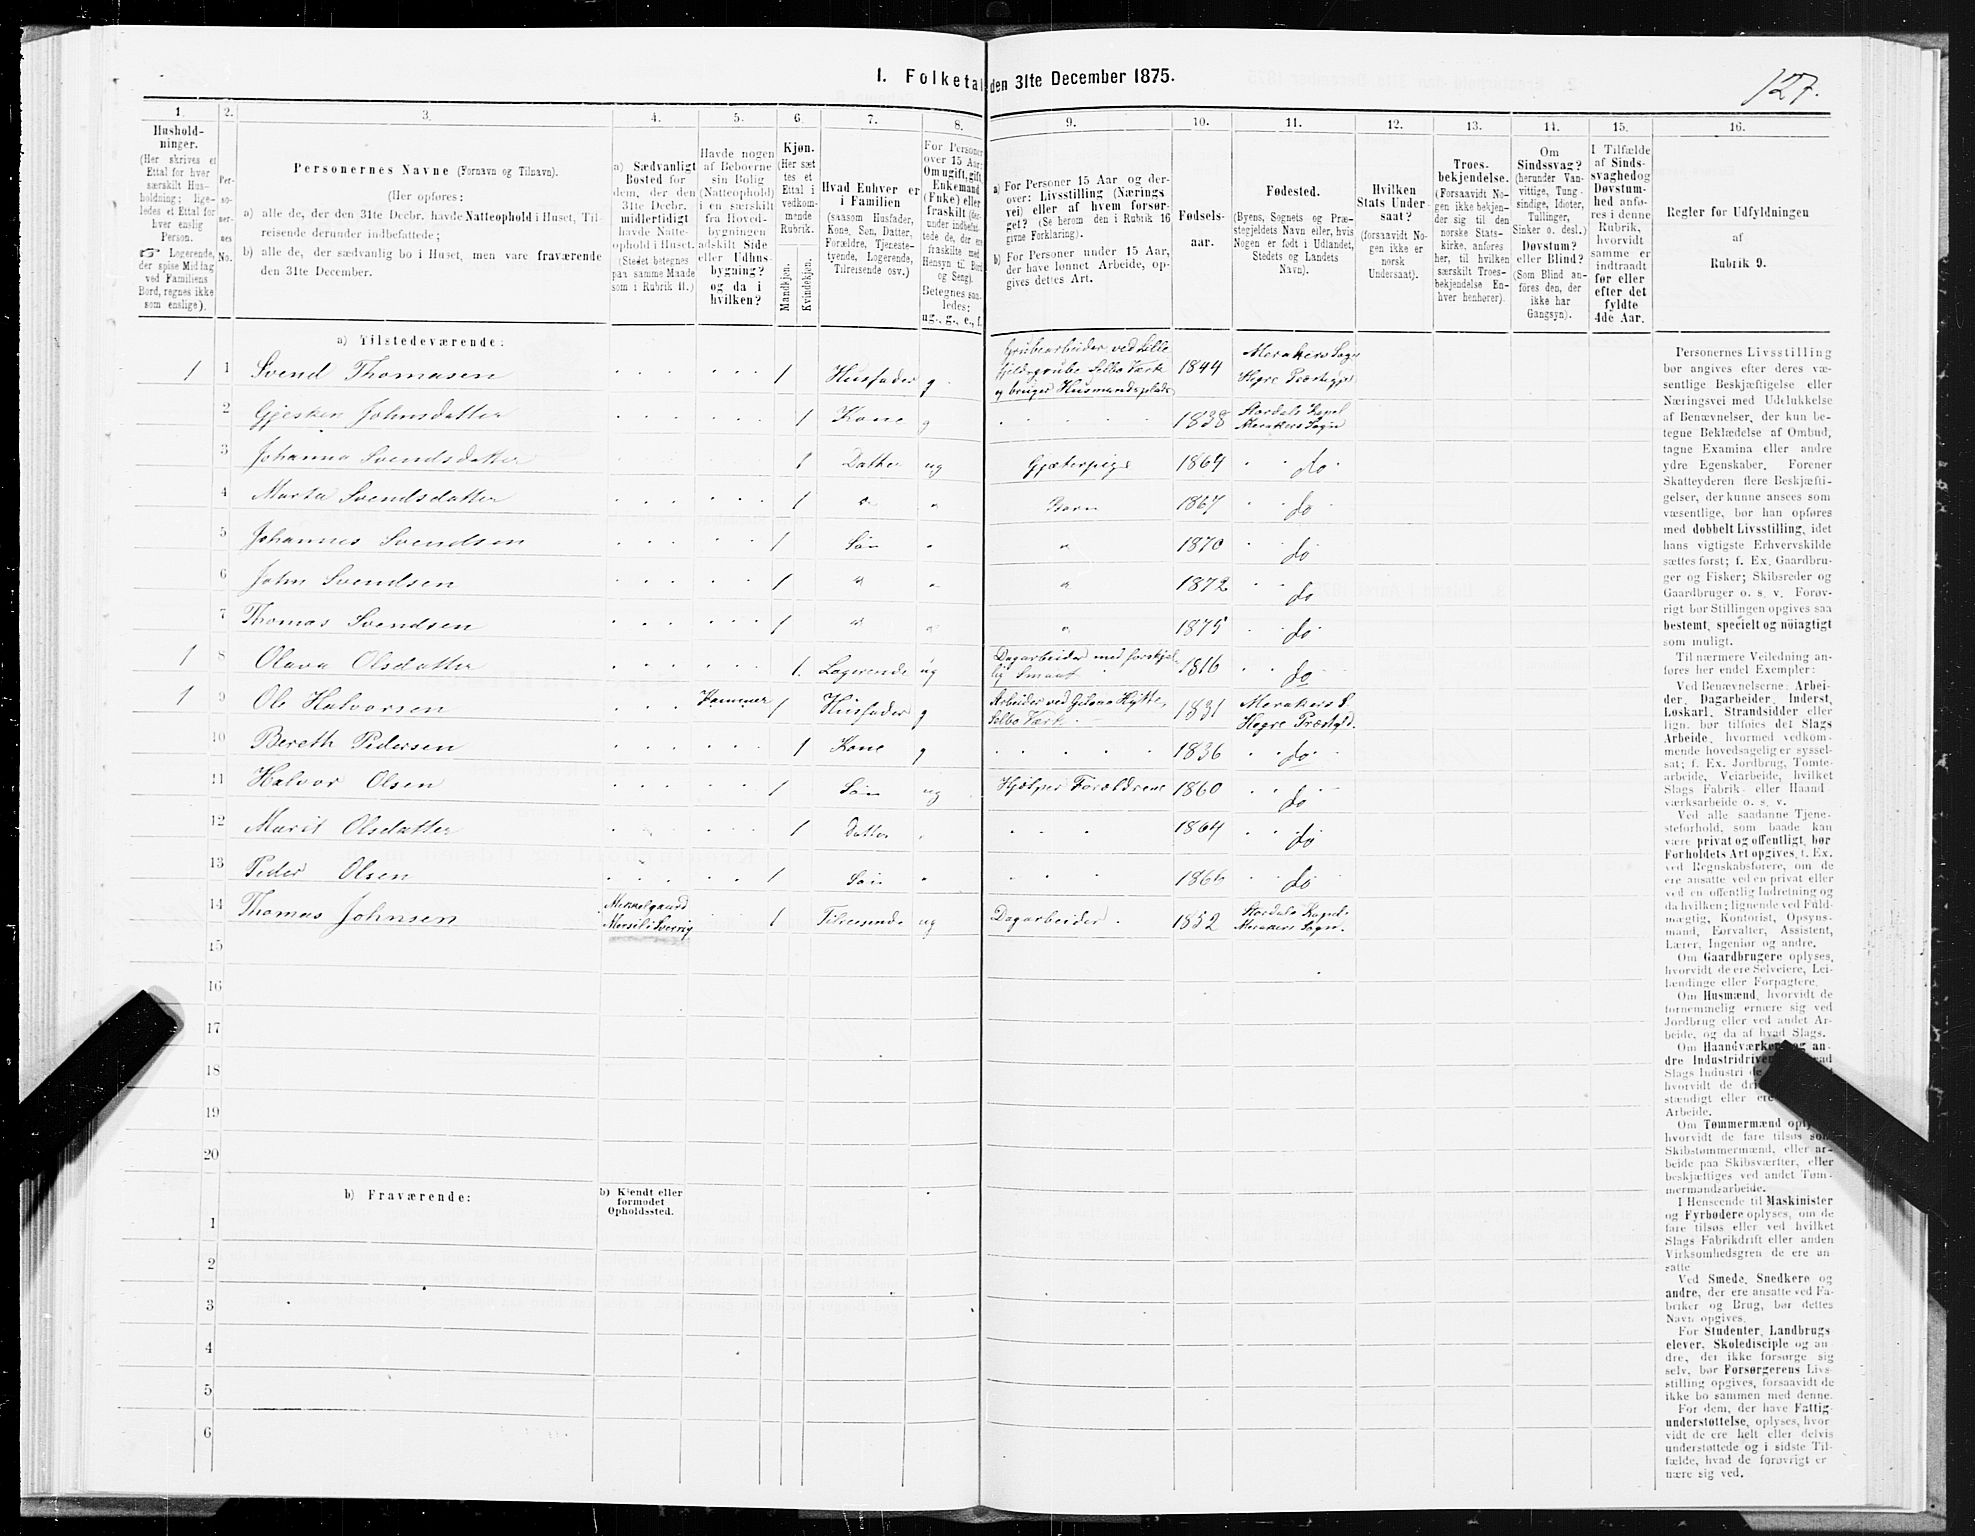 1. Folketal den 31te December 1875.
127.
1.
Hushold-
ninger.
(Her skrives et
Ettal for hver
særskilt Hus-
holdning; lige-
ledes et Ettal for
hver enslig
Person.
☞ Logerende,
der spise Middag
ved Familiens
Bord, regnes ikke
som enslige).
2.
Per-
so-
ner-
nes
No.
3.
Personernes Navne (Fornavn og Tilnavn).
(Her opføres:
a) alle de, der den 31te Decbr. havde Natteophold i Huset, Til-
reisende derunder indbefattede;
b) alle de, der sædvanlig bo i Huset, men vare fraværende
den 31te December.
4.
a) Sædvanligt
Bosted for
dem, der den
31te Decbr.
midlertidigt
havde Natte-
ophold i Huset.
(Stedet betegnes
paa samme Maade
som i Rubrik 11.)
5.
Havde nogen
af Beboerne
sin Bolig
(Natteophold)
i en særskilt
fra Hoved-
bygningen
adskilt Side
eller Udhus-
bygning?
og da i
hvilken?
6.
Kjøn.
(Her sæt
tes et
Ettal i
vedkom-
mende
Rubrik.
Mandkjøn.
Kvindekjøn.
7.
Hvad Enhver er
i Familien
(saasom Husfader,
Kone, Søn, Datter,
Forældre, Tjeneste-
tyende, Logerende,
Tilreisende osv.)
8.
For Personer
over 15 Aar:
Om ugift, gift,
Enkemand
(Enke) eller
fraskilt (der-
under indbefat-
tede de, der ere
fraskilte med
Hensyn til Bord
og Seng).
Betegnes saa-
ledes:
ug., g., e., f.
9.
a) For Personer 15 Aar og der-
over: Livsstilling (Nærings
vei) eller af hvem forsør-
get? (Se herom den i Rubrik 16
givne Forklaring).
b) For Personer under 15 Aar,
der have lønnet Arbeide, op-
gives dettes Art.
10.
Fødsels-
aar.
11.
Fødested.
(Byens, Sognets og Præ-
stegjeldets Navn eller, hvis
Nogen er født i Udlandet,
Stedets og Landets
Navn).
12.
Hvilken
Stats Under-
saat?
(forsaavidt No-
gen ikke er
norsk
Undersaat).
13.
Troes-
bekjendelse.
(Forsaavidt No-
gen ikke bekjen-
der sig til den
norske Stats-
kirke, anføres
her, til hvilken
særskilt Troes-
bekjendelse En-
hver henhører).
14.
Om
Sindssvag?
(herunder Van-
vittige, Tung-
sindige, Idioter,
Tullinger,
Sinker o. desl.)
Døvstum?
eller Blind?
(Som Blind an-
føres den, der
ikke har
Gangsyn).
15.
I Tilfælde
af Sinds-
svaghed og
Døvstum-
hed anfø-
res i denne
Rubrik,
hvorvidt
samme er
indtraadt
før eller
efter det
fyldte
4de Aar.
16.
Regler for Udfyldningen
af
Rubrik 9.
a) Tilstedeværende:
1 1 Svend Thomasen 1 Husfader g Grubearbeider ved Lille
Fjeldsgrube Selbo Værk
og bruger Husmandsplads 1844 Merakers Sogn
Hegre Præstegjd
2 Gjesken Johnsdatter 1 Kone g 1838 Stordals Kapel
Merakers Sogn
3 Johanna Svendsdatter 1 Datter ug Gjæterpige 1864 do
4 Marta Svendsdatter 1 " " Barn 1867 do
5 Johannes Svendsen 1 Søn " " 1870 do
6 John Svendsen 1 " " " 1872 do
7 Thomas Svendsen 1 " " " 1875 do
1 8 Olava Olsdatter 1. Logerende ug Dagarbeider med forskjel-
lig Smaat 1816 do
1 9 Ole Halvorsen Kammer 1 Husfader g Arbeider ved Gilsaa Hytte,
Selbo Værk 1831 Merakers S.
Hegre Præstgd.
10 Bereth Pedersen 1 Kone g 1836 do
11 Halvor Olsen 1 Søn ug Hjælper Forældrene 1860 do
12 Marit Olsdatter 1 Datter 1864 do
13 Peder Olsen 1 Søn " 1866 do
14 Thomas Johnsen Mekkelgaard
Mærsil i Sverrig 1 Tilreisende ug Dagarbeider. 1852 Stordals Kapel-
Merakers Sogn.
15
16
17
18
19
20
b) Fraværende:
b) Kjendt eller
formodet
Opholdssted.
1
2
3
4
5
6
Personernes Livsstilling
bør angives efter deres væ-
sentlige Beskjæftigelse eller
Næringsvei med Udelukkelse
af Benævnelser, der kun be-
tegne Beklædelse af Ombud,
tagne Examina eller andre
ydre Egenskaber. Forener
Skatteyderen flere Beskjæfti-
gelser, der kunne ansees som
væsentlige, bør han opføres
med dobbelt Livsstilling, idet
hans vigtigste Erhvervskilde
sættes først; f. Ex. Gaardbru-
ger og Fisker; Skibsreder og
Gaardbruger o. s. v. Forøv-
rigt bør Stillingen opgives saa
bestemt, specielt og nøiagtigt
som muligt.
Til nærmere Veiledning an-
føres her endel Exempler:
Ved Benævnelserne: Arbei-
der, Dagarbeider, Inderst,
Løskarl, Strandsidder eller
lign. bør tilføies det Slags
Arbeide, hvormed vedkom-
mende hovedsagelig er syssel-
sat; f. Ex. Jordbrug, Tomte-
arbeide, Veiarbeide, hvilket
Slags Fabrik- eller Haand-
værksarbeide o. s. v.
Ved alle saadanne Tjene-
steforhold, som baade kan
være privat og offentligt, bør
Forholdets Art opgives, f. Ex.
ved Regnskabsførere, om de
ere ansatte ved en privat eller
ved en offentlig Indretning og
da hvilken; lignende ved Fuld-
mægtig, Kontorist, Opsyns-
mand, Forvalter, Assistent,
Lærer, Ingeniør og andre.
Om Gaardbrugere oplyses,
hvorvidt de ere Selveiere, Lei-
lændinge eller Forpagtere.
Om Husmænd, hvorvidt de
fornemmelig ernære sig ved
Jordbrug eller ved andet Ar-
beide, og da af hvad Slags.
Om Haandværkere og an-
dre Industridrivende
Slags Industri
hvorvidt de
stændigt eller ere
Arbeide.
Om Tømmermænd
hvorvidt de fare tilsøs som
Skibstømmermænd, eller ar-
beide paa Skibsværfter, eller
beskjæftiges ved andet Tøm-
mermandsarbeide.
I Henseende til Maskinister
og Fyrbødere oplyses, om de
fare tilsøs eller ved hvilket
Slags Fabrikdrift eller anden
Virksomhedsgren de ere an-
satte
Ved Smede, Snedkere og
andre, der ere ansatte ved Fa-
briker og Brug, bør dettes
Navn opgives.
For Studenter, Landbrugs
elever, Skoledisciple og an
dre, der ikke forsørge sig
selv, bør Forsørgerens Livs-
stilling opgives, forsaavidt de
ikke bo sammen med denne.
For dem, der have Fattig-
understøttelse, oplyses, hvor
vidt de ere helt eller delvis
understøttede og i sidste Til-
fælde, hvad de forøvrigt er
nære sig ved.